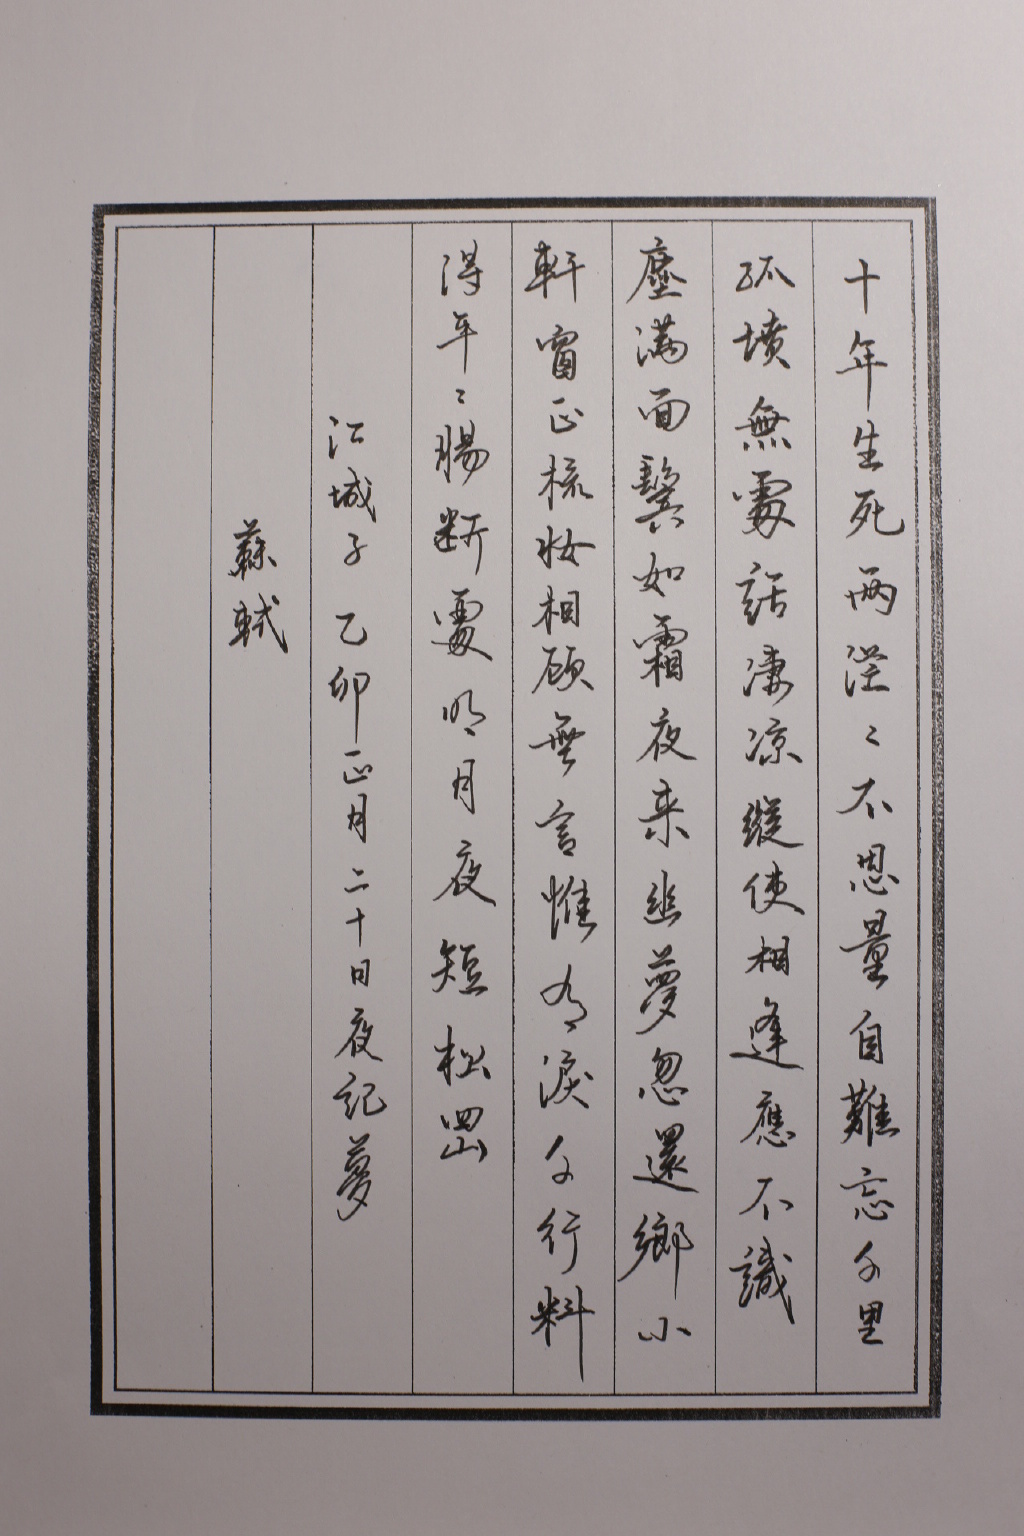 十年生死两茫〻不思量自難忘千里
孤墳無處話淒凉縱使相逢應不識
塵满面鬢如霜夜来幽夢忽還鄉小
軒窗正梳妝相顾無言惟有淚千行料
得年〻腸断處明月夜短松岡
江城子乙卯正月二十日夜記夢
蘇軾